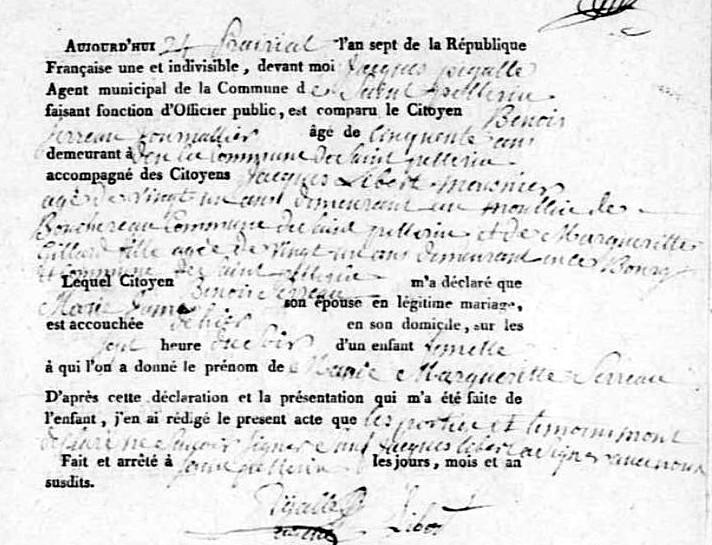 AUJOURD'HUI 24 Prairial l'an sept de la République
Française une et indivisible, devant moi Jacques pigalle
Agent municipal de la Commune de Saint pellerin
faisant fonction d'Officier public, est comparu le Citoyen Benois
Serreau Journallier âgé de Cinquente ans
demeurant à Commune de Saint pellerin
accompagné des Citoyens Jacques Libert meusnier
agé de vingt un ans demeurant au moullin de
Bouchereau Commune de Saint pellerin et de Margueritte
Gillard fille agée de vingt un ans demeurant en ce Bourg
et Commune de Saint pellerin
Lequel Citoyen Benois Serreau m'a déclaré que
Marie son épouse en légitime mariage,
est accouchée de hier en son domicile, sur les
Sept heure du Soir d'un enfant femelle
à qui l'on a donné le prénom de Marie Margueritte Serreau
D'après cette déclaration et la présentation qui m'a été faite de
l'enfant, j'en ai rédigé le present acte que les parties et temoins mont
declaré ne Savoir Signer Jacques libert a Signer avec nous
Fait et arrêté à pellerin les jours, mois et an
susdits.
Pigalle
Libert